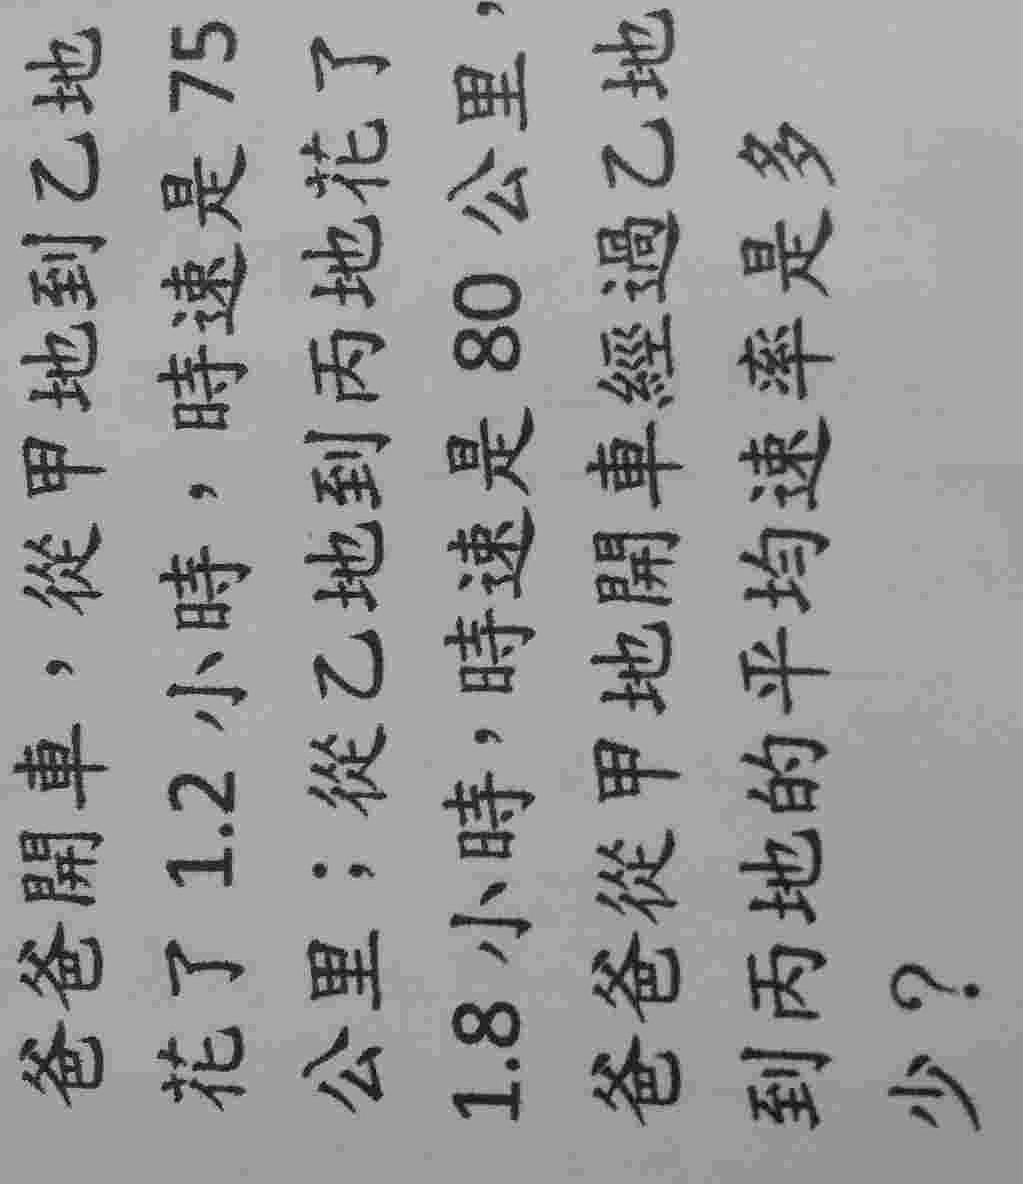 爸爸開車，從甲地到乙地
花了 1.2 小時，時速是 75
公里；從乙地到丙地花了
1.8 小時，時速是 80 公里，
爸爸從甲地開車經過乙地
到丙地的平均速率是多
少？